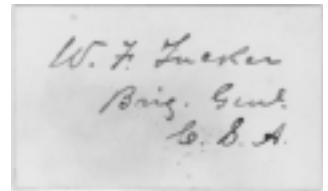 W. F. Tucker
Brig. Genl.
C. S. A.